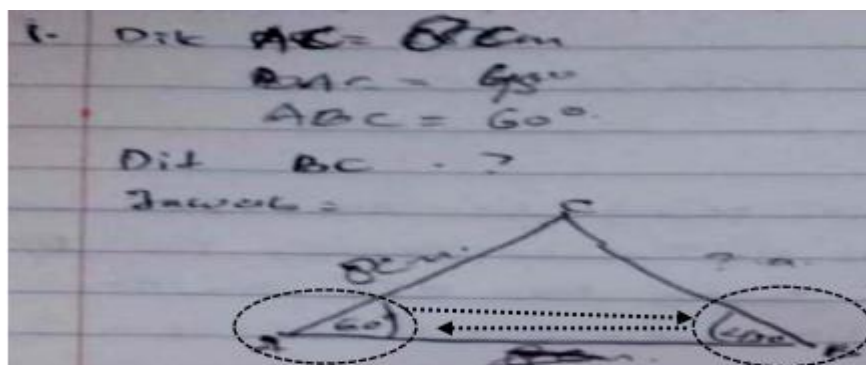 1. Dik AC = 8 cm
BAC = 45°
ABC = 60°.
Dit BC . ?
Jawab =
C
8cm. ? a.
A 60° 45° B